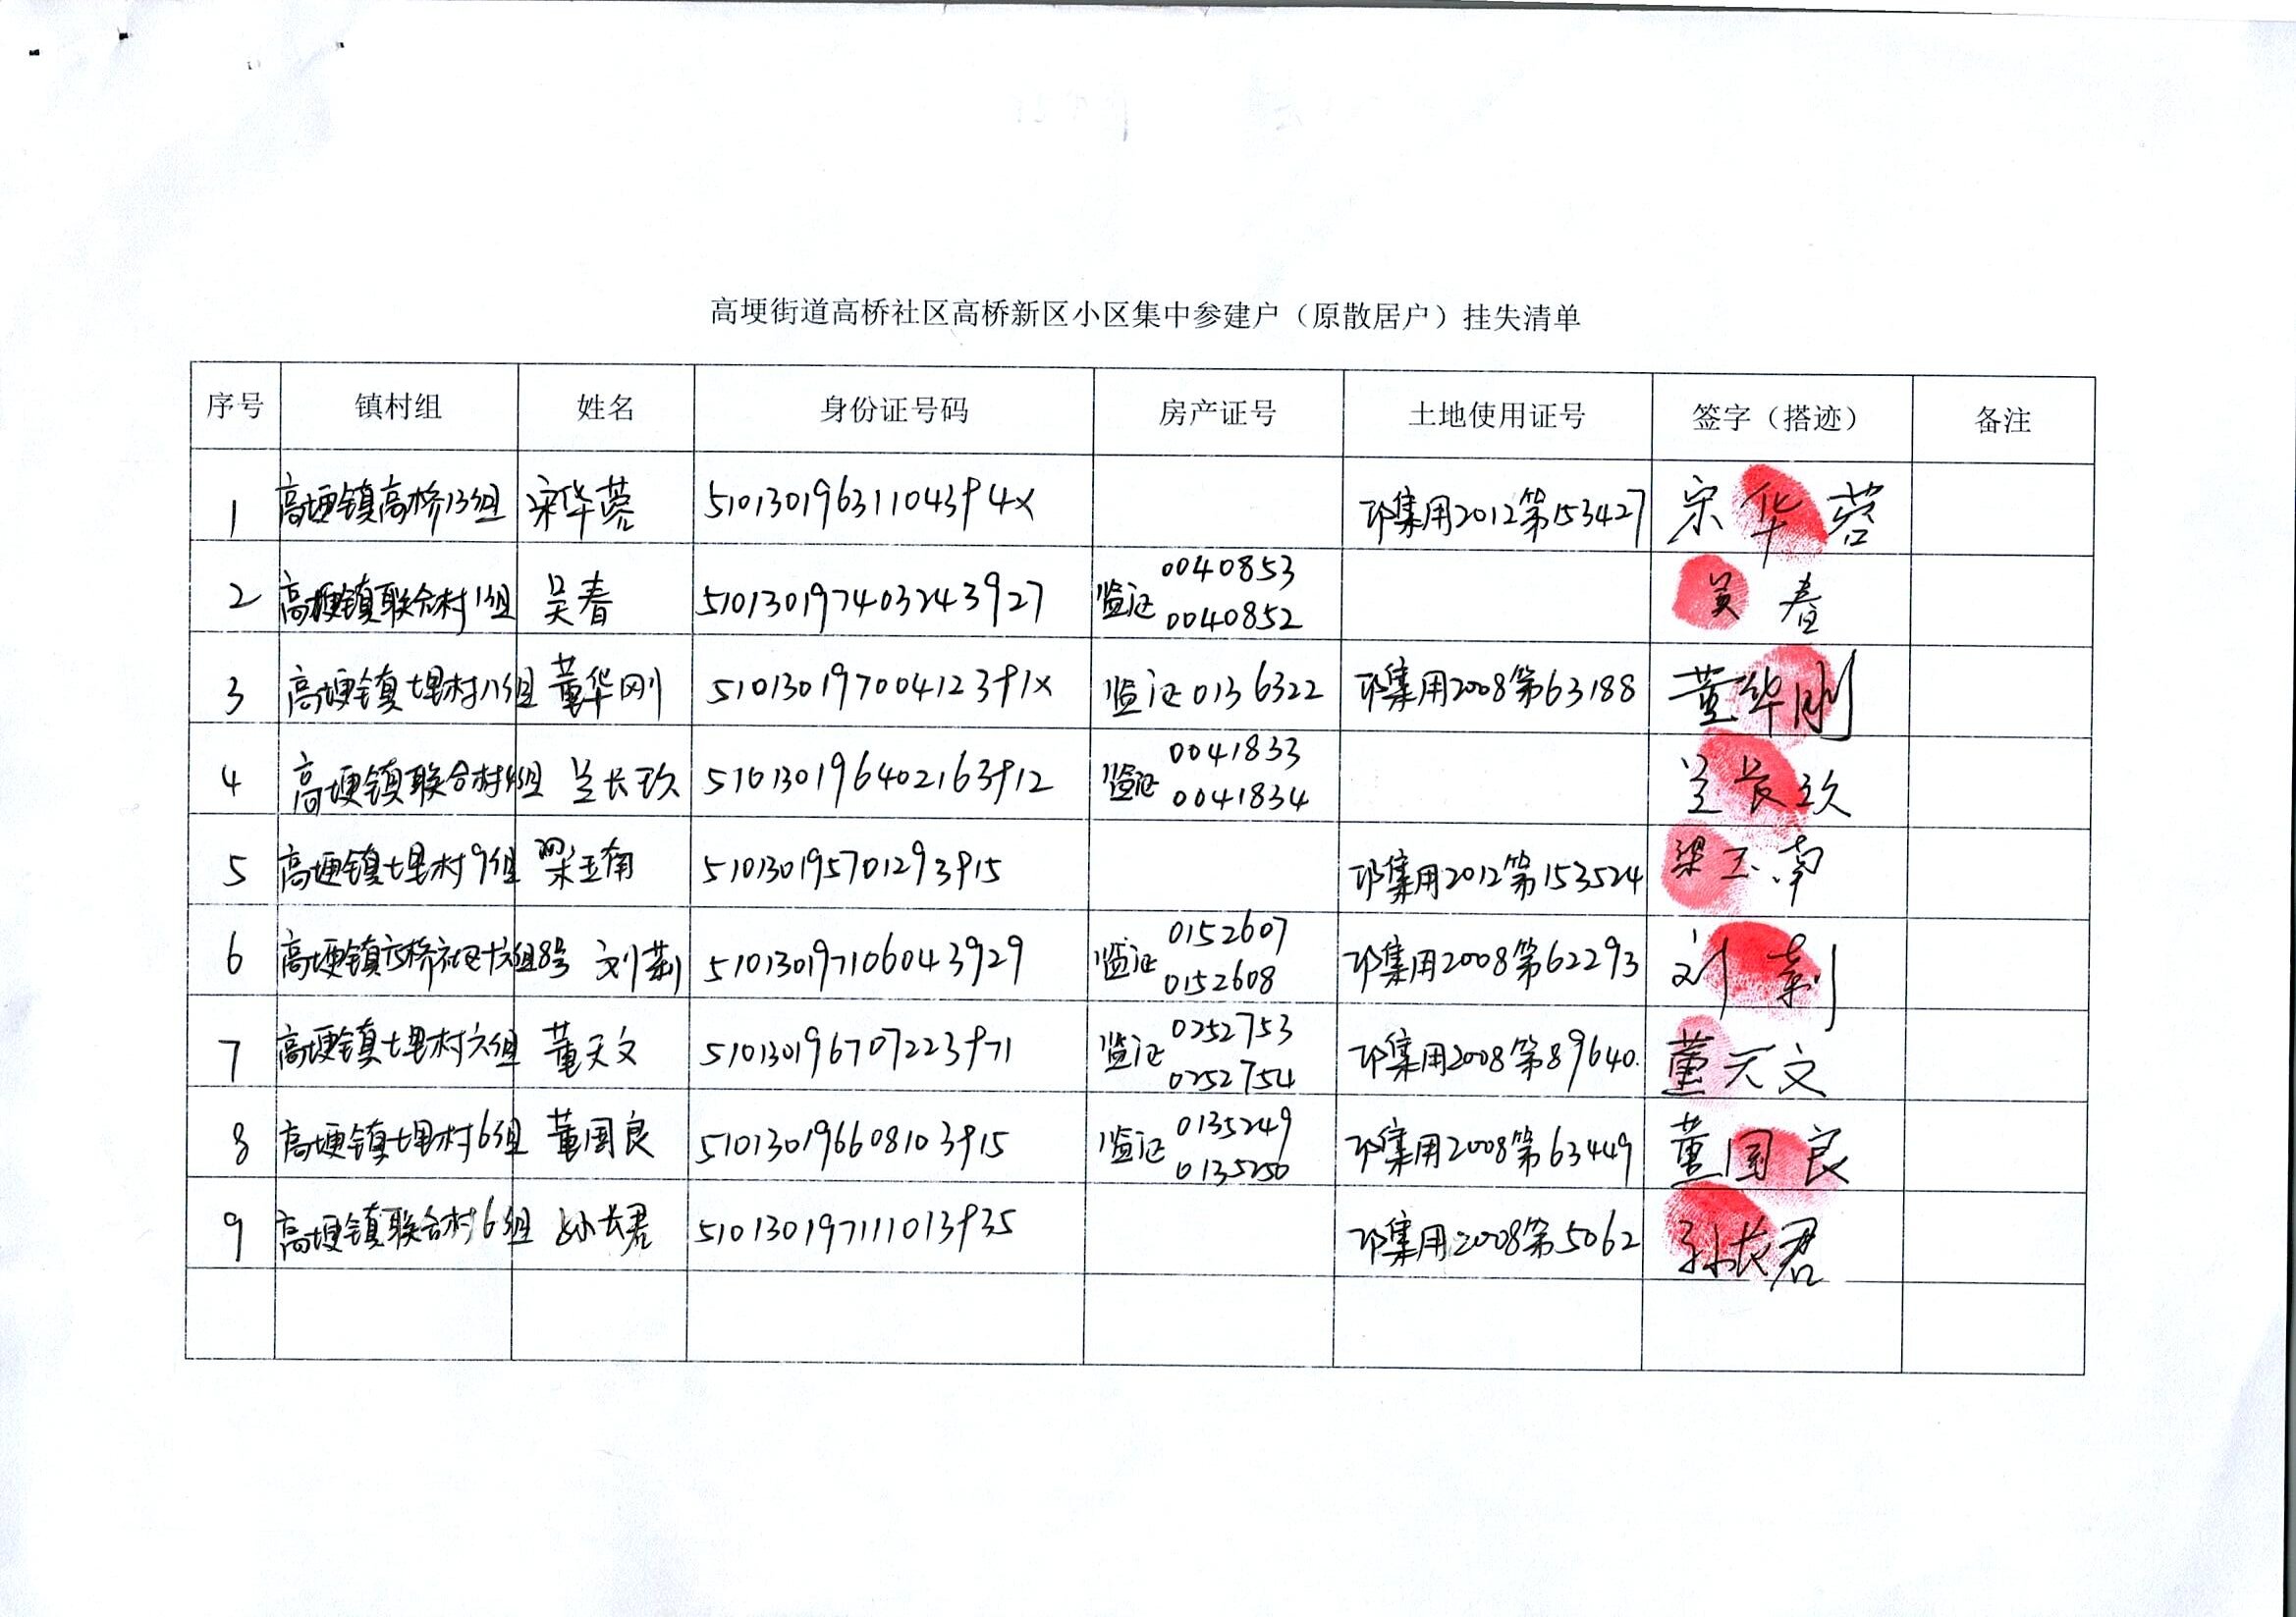 高埂街道高桥社区高桥新区小区集中参建户（原散居户）挂失清单
序号 镇村组 姓名 身份证号码 房产证号 土地使用证号 签字（搭迹） 备注
1 高埂镇高桥13组 宋华蓉 51013019631104394X 邛集用2012第153427 宋华蓉
2 高埂镇联合村1组 吴春 510130197403243927 监证 0040853 0040852 吴春
3 高埂镇土里村八组 董华刚 51013019700412391X 监证0136322 邛集用2008第63188 董华刚
4 高埂镇联合村4组 兰长玖 510130196402163912 监证 0041833 0041834 兰长玖
5 高埂镇土里村9组 梁玉南 510130195701293915 邛集用2012第153524 梁玉南
6 高埂镇高桥社区十六组8号 刘莉 510130197106043929 监证 0152607 0152608 邛集用2008第62293 刘莉
7 高埂镇土里村六组 董天文 510130196707223971 监证 0252753 0252754 邛集用2008第89640. 董天文
8 高埂镇土里村6组 董国良 510130196608103915 监证 0135249 0135250 邛集用2008第63449 董国良
9 高埂镇联合村6组 孙长君 510130197111013935 邛集用2008第5062 孙长君